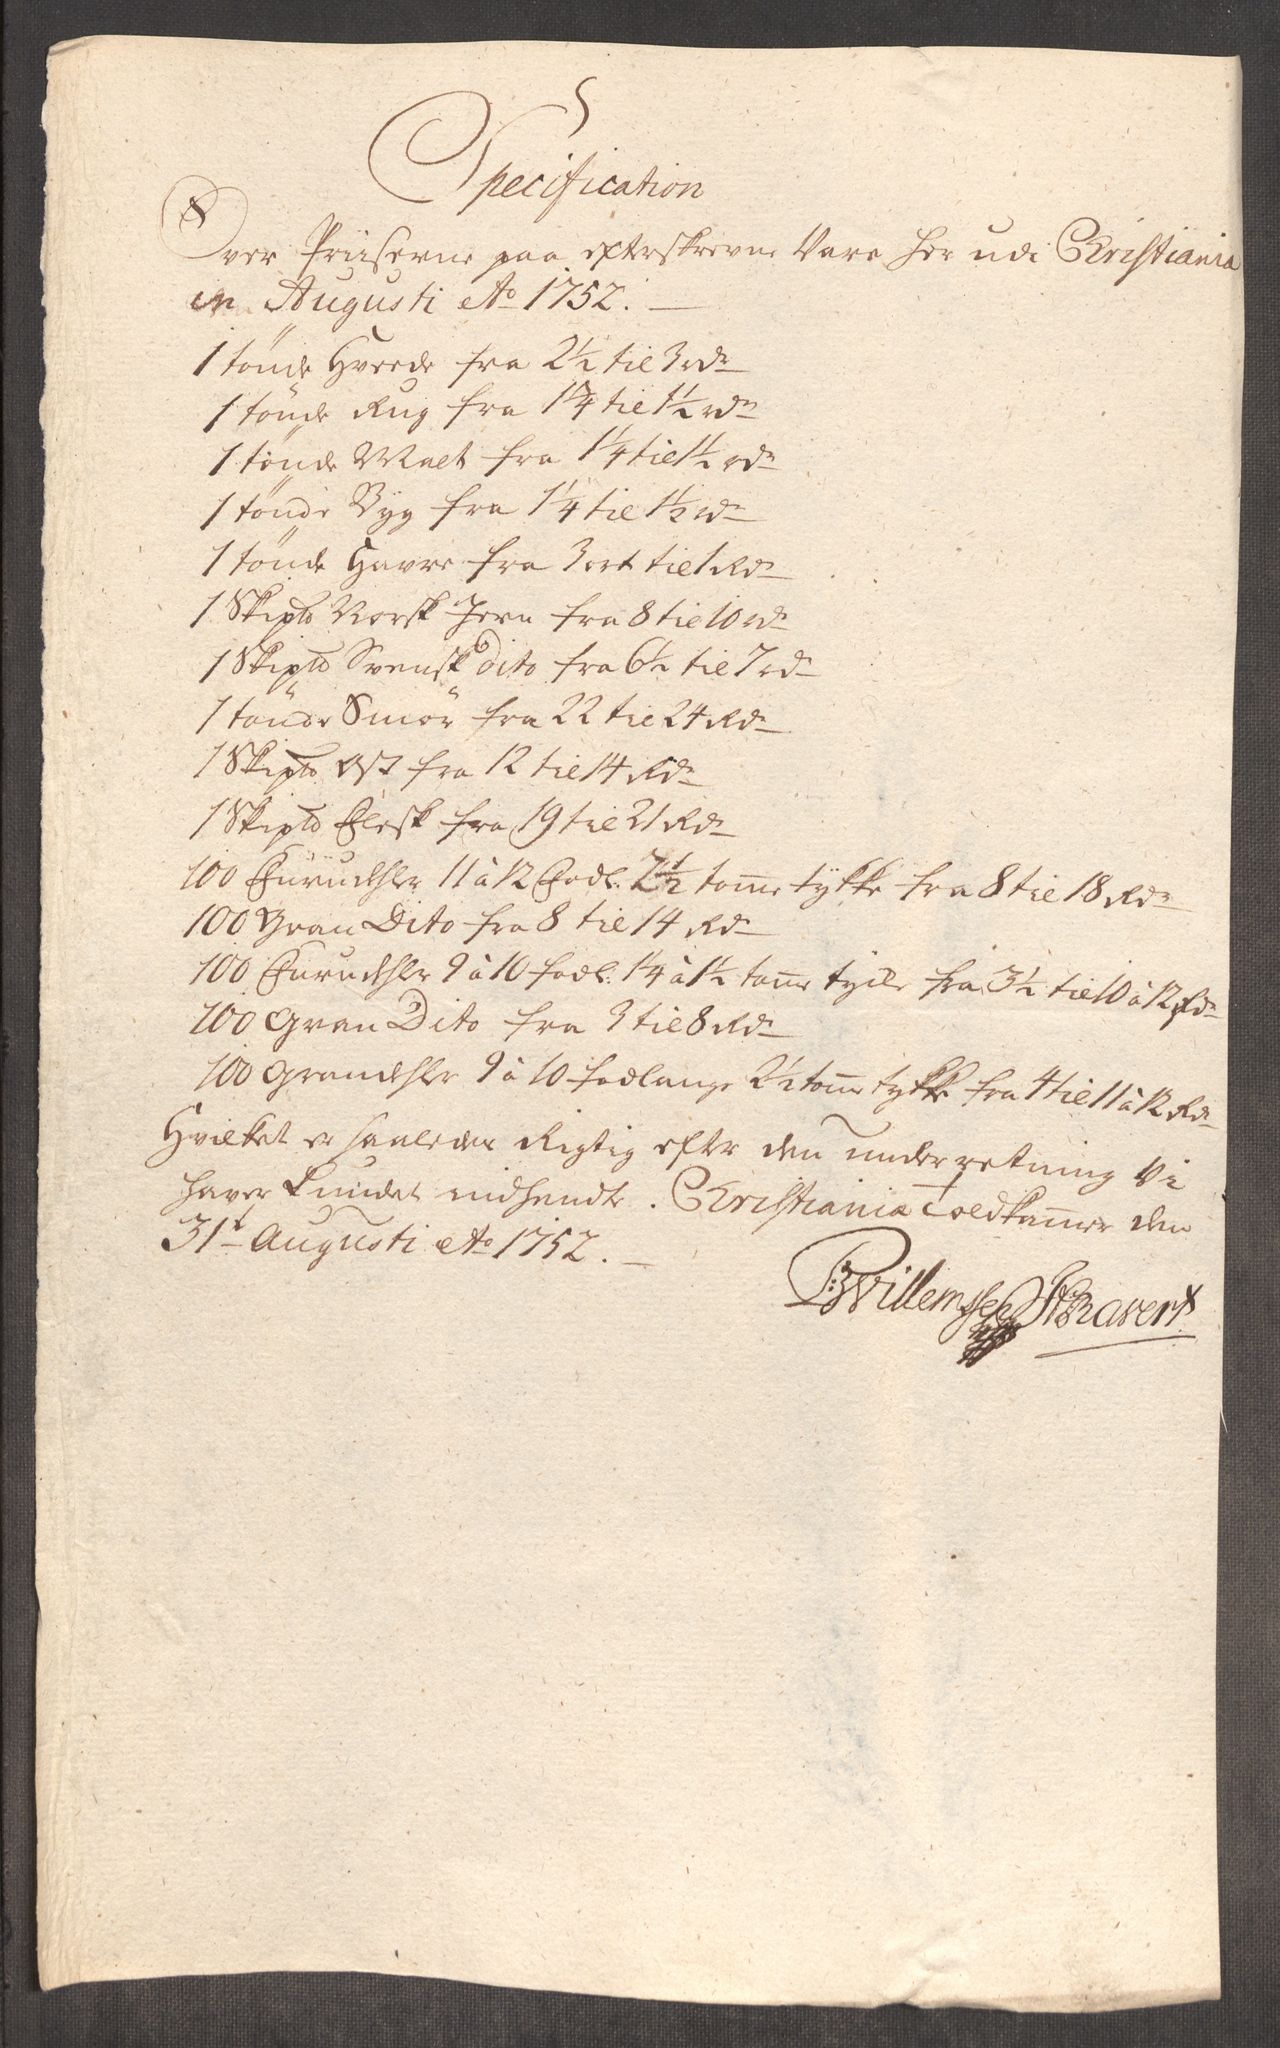 Specification
Over Priiserne paa efterskrevne Vare her udi Christiania
in Augusti Ao 1752. —
1 tönde Hvede fra 2½ til 3 rdr
1 tönde Rug fra 1¼ til 1½ rdr
1 tönde Malt fra 1¼ til 1½ rdr
1 tönde Byg fra 1¼ til 1½ rdr
1 tönde Havre fra 3 ort til 1 Rdr
1 Skipld Norsk Jern fra 8 til 10 rdr
1 Skipld Svensk Dito fra 6½ til 7 rdr
1 tönde Smör fra 22 til 24 Rdr
1 Skipld Ost fra 12 til 14 Rdr
1 Skipld Flesk fra 19 til 21 Rdr
100 Furudehler 11 à 12 Fodl. 2½ tomme tykke fra 8 til 18 Rdr
100 Gran Dito fra 8 til 14 Rdr
100 Furudehlr 9 à 10 fodl. 1¼ à 1½ tomme fra 3½ til 10 à 12 Rdr
100 Gran Dito fra 3 til 8 Rdr
100 Grandehlr 9 à 10 fodlange 2½ tomme tykke fra 4 til 11 à 12 Rdr
Hvilket er saaledes Rigtig efter den underretning Vi
haver kundet indhendte. Christiania Toldkammer den
31t Augusti Ao 1752. —